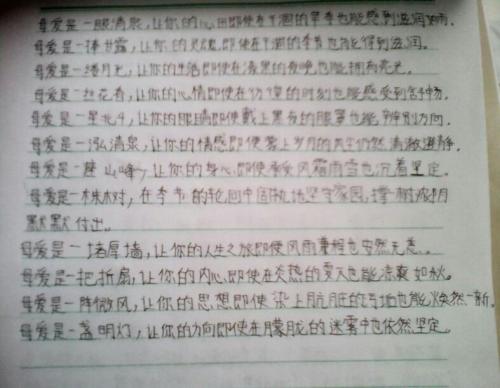 母爱是一眼清泉,让你的心田即使在干涸的旱季也能感到滋润如雨。
母爱是一捧甘露,让你的灵魂即使在干涸的季节也能得到滋润。
母爱是一缕月光,让你的生活即使在漆黑的夜晚也能拥有亮光。
母爱是一丝花香,让你的心情即使在彷徨的时刻也能感受到芬芳。
母爱是一星北斗,让你的眼睛即使戴上黑夜的眼罩也能辨别方向。
母爱是一泓清泉,让你的情感即使蒙上岁月的风尘仍然清澈澄静。
母爱是一座山峰,让你的身心即使承受风霜雨雪也沉着坚定。
母爱是一株树,在季节的轮回中固执地坚守家园,撑树成阴
默默付出。
母爱是一堵厚墙,让你的人生之旅即使风雨兼程也安然无恙。
母爱是一把折扇,让你的内心即使在炎热的夏天也能凉爽如秋。
母爱是一阵微风,让你的思想即使染上肮脏的污垢也能焕然一新。
母爱是一盏明灯,让你的方向即使在朦胧的迷雾中也依然坚定。